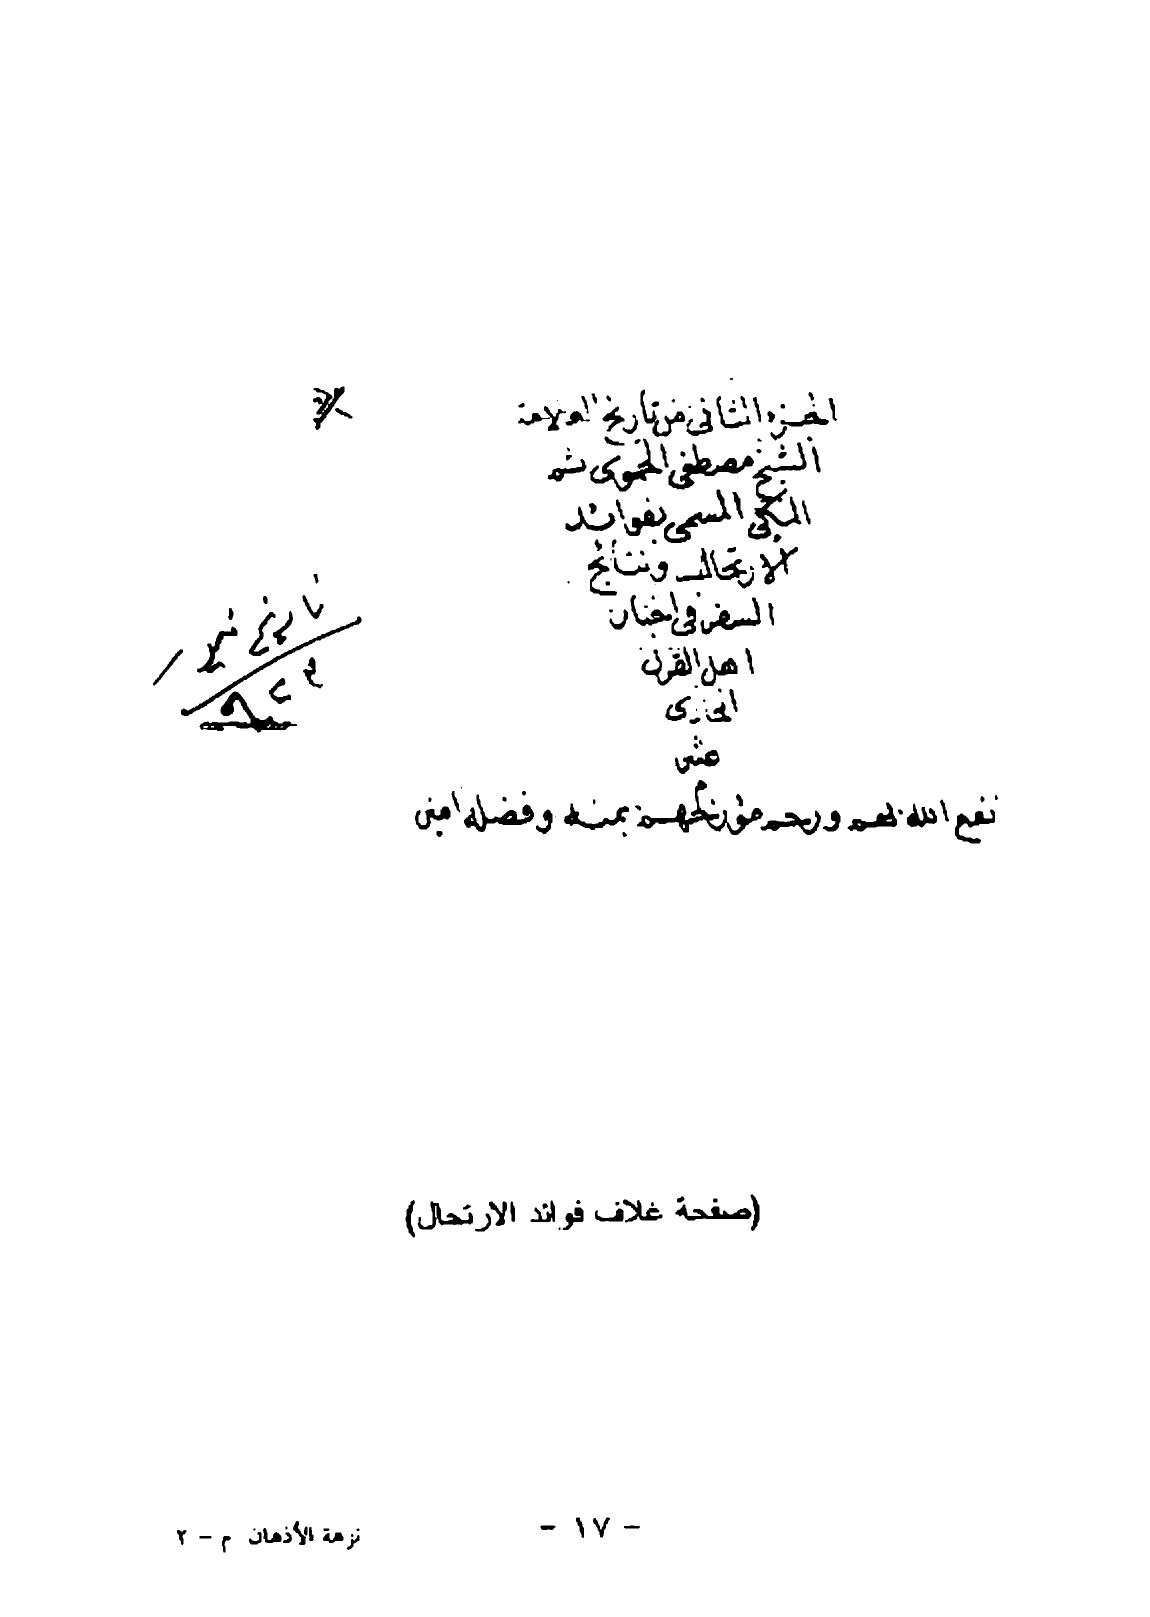 الجزء الثاني من تاريخ العلامة
الشيخ مصطفى الحموي ثم
المكي المسمى بفوائد
الارتحال ونتائج
السفر في اخبار
اهل القرن
الحادي
عشر
نفع الله بهم ورحم مؤرخهم بمنه وفضله امين
تاريخ
(صفحة غلاف فوائد الارتحال)
- ١٧ -
نزهة الأذهان م - ٢